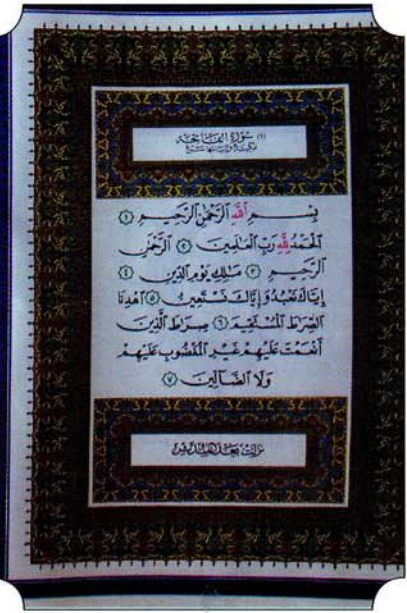 (١) سُورَةُ الفَاتِحَةِ
مَكِّيَّة وَآيَاتُهَا سَبْعٌ
بِسْمِ ٱللَّهِ ٱلرَّحْمَٰنِ ٱلرَّحِيمِ ١
ٱلْحَمْدُ لِلَّهِ رَبِّ ٱلْعَٰلَمِينَ ٢ ٱلرَّحْمَٰنِ
ٱلرَّحِيمِ ٣ مَٰلِكِ يَوْمِ ٱلدِّينِ ٤
إِيَّاكَ نَعْبُدُ وَإِيَّاكَ نَسْتَعِينُ ٥ ٱهْدِنَا
ٱلصِّرَٰطَ ٱلْمُسْتَقِيمَ ٦ صِرَٰطَ ٱلَّذِينَ
أَنْعَمْتَ عَلَيْهِمْ غَيْرِ ٱلْمَغْضُوبِ عَلَيْهِمْ
وَلَا ٱلضَّآلِّينَ ٧
نزلت بعد المدثر